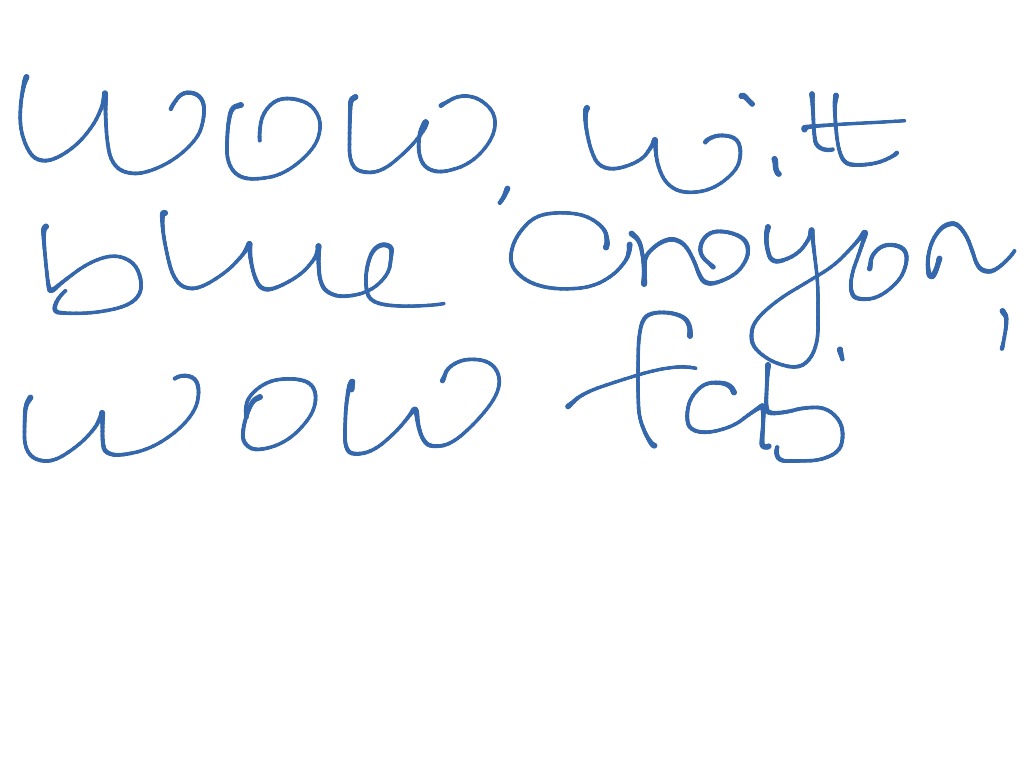 Wow, witt
blue Crayon,
wow fab